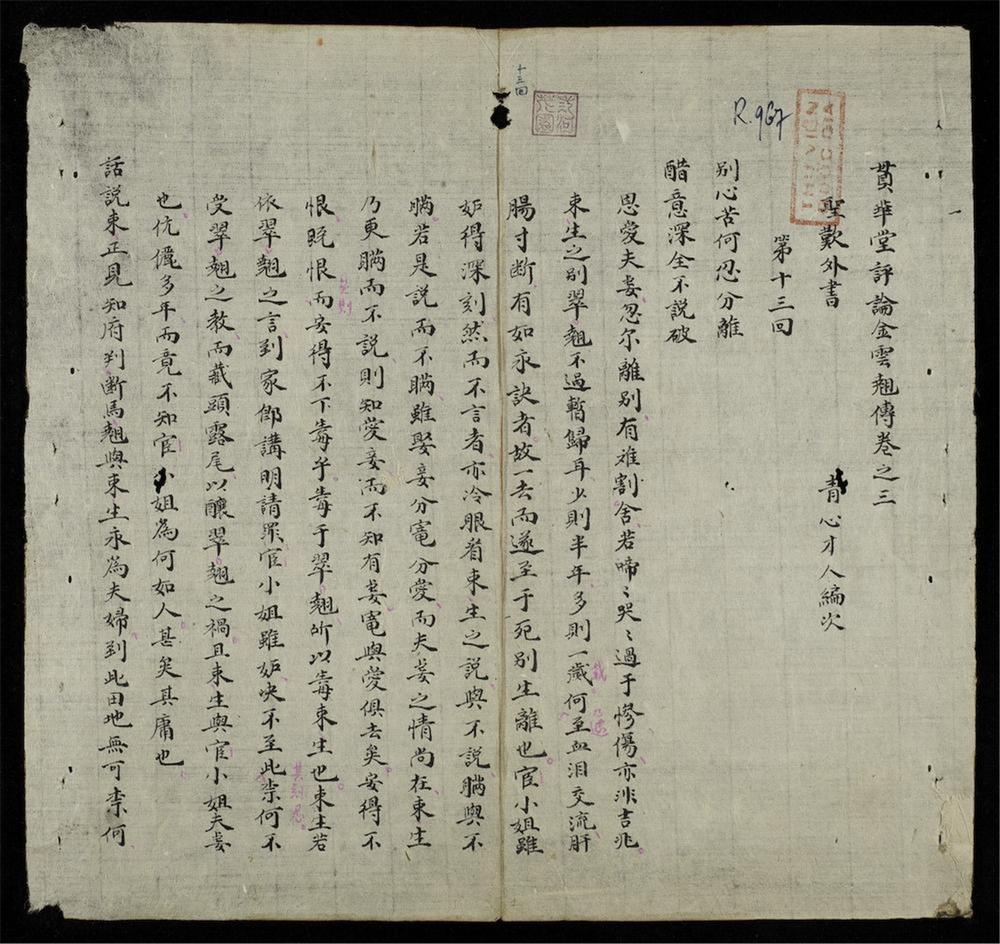 一
貫華堂評論金雲翹傳卷之三
聖歎外書
青心才人編次
第十三回
別心苦何忍分離
醋意深全不說破
恩愛夫妻忽尔離别有难割舍若啼〻哭〻過于慘傷亦非吉兆
束生之别翠翹不過暫歸耳少則半年多則一歲何至血泪交流肝
腸寸断有如永訣者故一去而遂至于死别生離也宦小姐雖
妬得深刻然而不言者亦冷眼看束生之説與不説瞞與不
瞞若是説而不瞞雖娶妾分寵分愛而夫妾之情尚在束生
乃更瞞而不説則知愛妾而不知有妻寵與愛俱去矣安得不
恨既恨而安得不下毒乎毒于翠翹所以毒束生也束生若
依翠翹之言到家即講明請罪宦小姐雖妬決不至此柰何不
受翠翹之教而藏頭露尾以釀翠翹之禍且束生與宦小姐夫妻
也伉儷多年而竟不知宦小姐為何如人甚矣其庸也
話説束正見知府判断馬翹與束生永為夫婦到此田地無可柰何
R.967
十三回